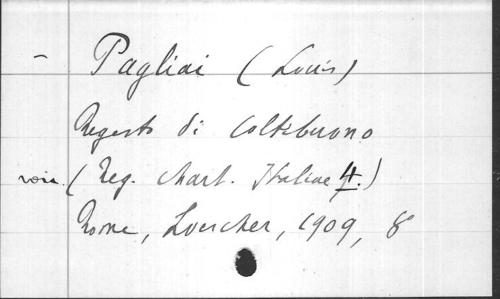 – Pagliai (Louis)
Regesto di Coltibuono
voir. (Reg. Chart. Italiae 4.)
Rome, Loescher, 1909, 8°